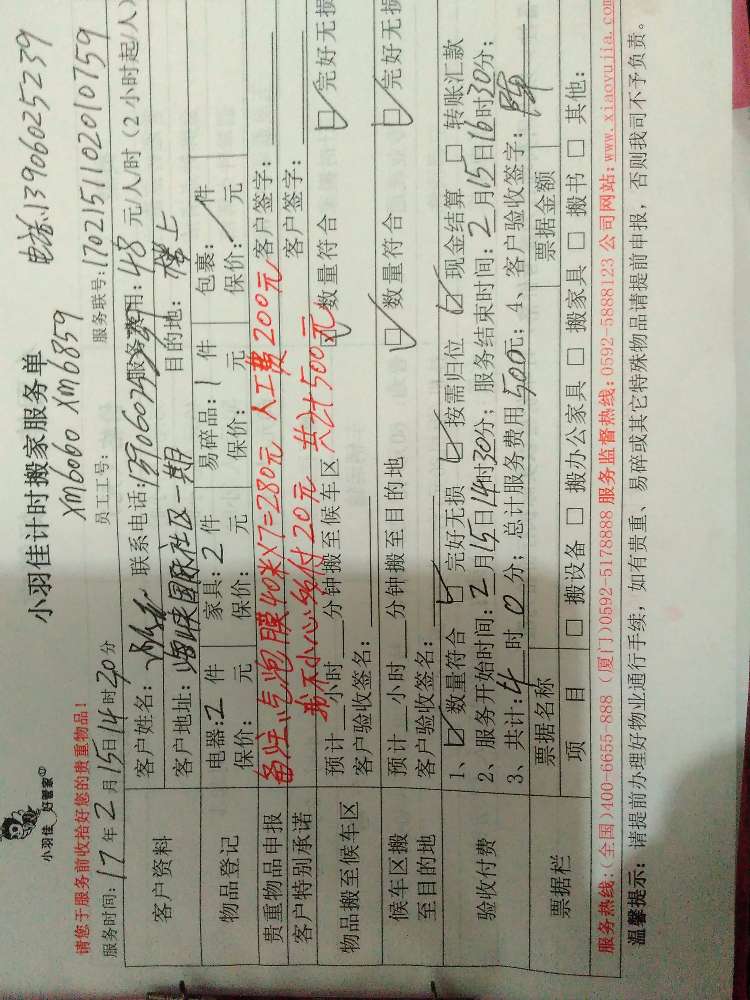 小羽佳
好管家
小羽佳计时搬家服务单
电话:13906025239
请您于服务前收拾好您的贵重物品!
员工工号: XM6060 XM6859
服务联号:1702151102010759
服务时间:17年2月15日14时30分
客户资料
客户姓名: 联系电话:13906025239 服务费用:48元/人/时(2小时起/人)
客户地址:海峡国际社区一期 目的地:楼上
物品登记
电器:2件 家具:2件 易碎品:1件 包裹:/件
保价: 元 保价: 元 保价: 元 保价:/元
贵重物品申报 客户签字:
备注:气泡膜40米×7=280元 人工费200元
客户特别承诺 客户签字:
我不小心多付20元 共计500元
物品搬至候车区
预计 小时 分钟搬至候车区 ☑数量符合 ☑完好无损
客户验收签名:
候车区搬至目的地
预计 小时 分钟搬至目的地 ☑数量符合 ☑完好无损
客户验收签名:
验收付费
1、☑数量符合 ☑完好无损 ☑按需归位 ☑现金结算 □转账汇款
2、服务开始时间:2月15日14时30分;服务结束时间:2月15日16时30分;
3、共计:4时0分;总计服务费用500元;4、客户验收签字:
票据栏
票据名称 票据金额
项目 □搬设备 □搬办公家具 □搬家具 □搬书 □其他:
服务热线:(全国)400-6655-888 (厦门)0592-5178888 服务监督热线:0592-5888123 公司网站:www.xiaoyujia.com
温馨提示:请提前办理好物业通行手续,如有贵重、易碎或其它特殊物品请提前申报,否则我司不予负责。